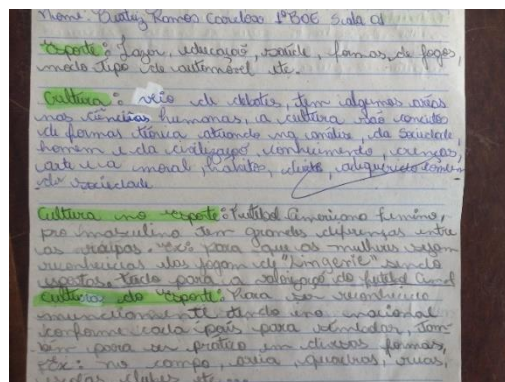 Nome: Beatriz Ramos Cardoso 1ºBOE Sala 01
Esporte: Lazer, educação, saúde, formas, de jogos,
modo tipo de automóvel etc.
Cultura: veio de debates, tem algumas
nas ciências humanas, a cultura são conceitos
de formas teórica atuando na análise, da Sociedade,
homem e da civilização, conhecimento, crenças,
arte e a moral, hábitos, direito, adquirido
da sociedade
Cultura no esporte: Futebol Americano feminino,
pro masculino tem grandes diferenças entre
as equipes. Ex: para que as mulheres sejam
reconhecidas elas jogam de "lingerie" sendo
expostas, tudo para a valorização do futebol
Culturas do esporte: Para ser reconhecido
mundialmente tendo no nacional
conforme cada país para tam
bém para ser prático em diversas formas,
Ex: no campo, areia, quadras, ruas,
escolas, clubes etc